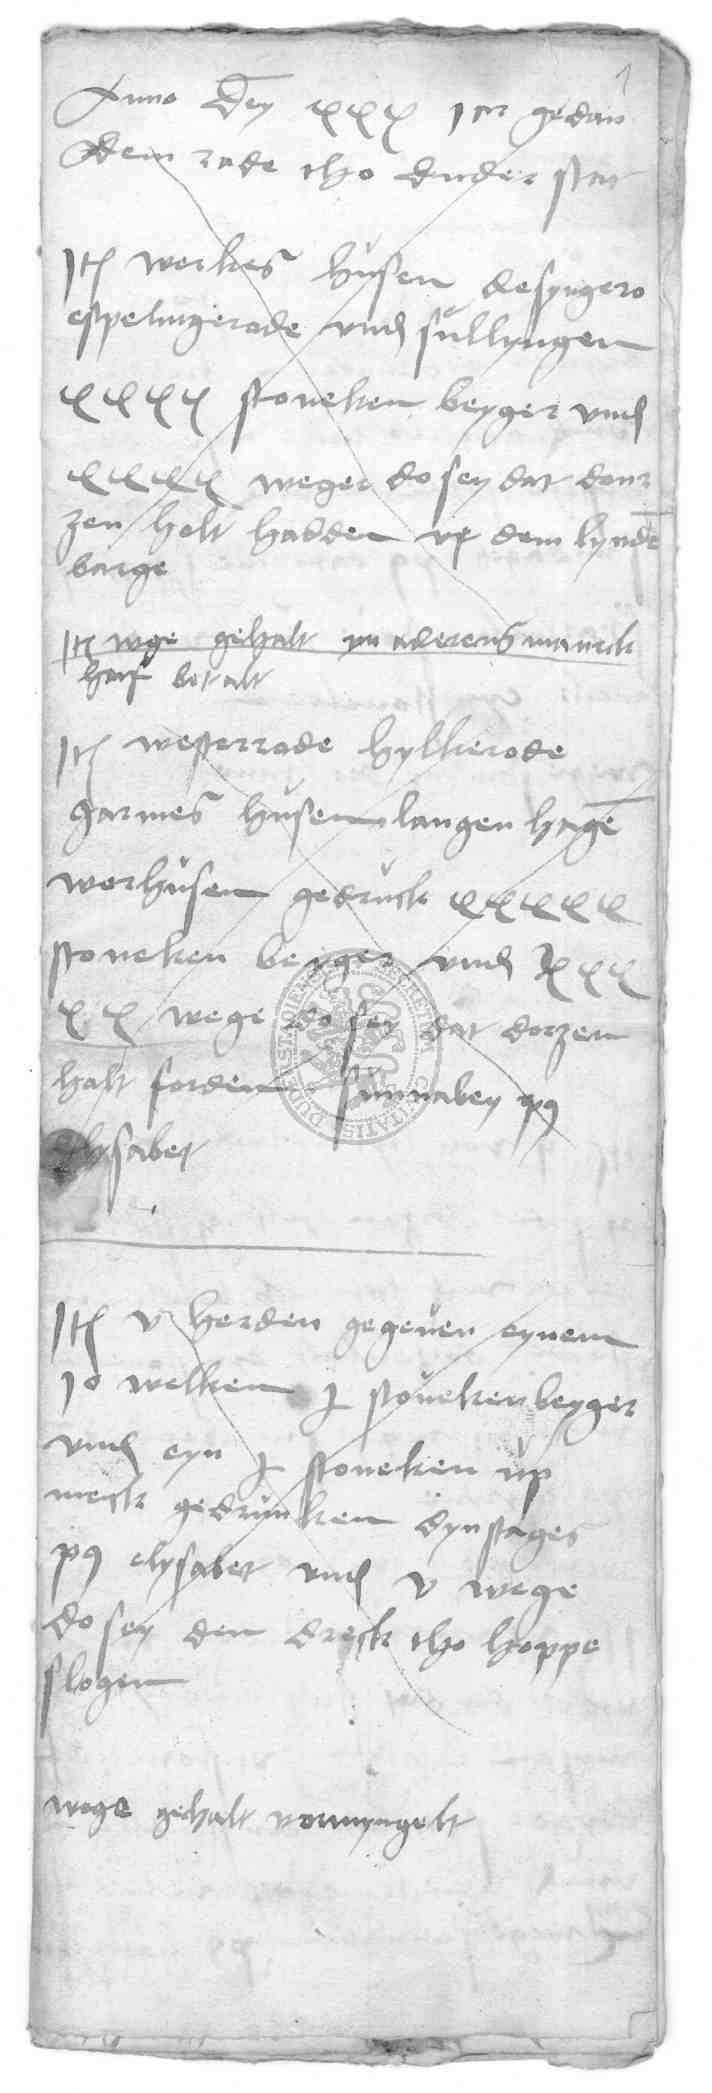 1
Anno dny xxx jar gedan
dem rade tho duder stat
Jtem werkes husen desyngero
espelingerode vnd sullyngen
xxxx stoueken beyger vnd
xxxx weger do sey dat donr
zen holt hadden vp dem lynde
barge
Jtem wge gehalt yn aderens manck
half betalt
Jtem westerrade hylkerode
garmes husen langen hage
werhusen gedruck xxxxx
stoueken beyger vnd xxx
xx wege do sey dat dorzen
halt forden sunnabey p9
elysabet
Jtem v herden gegeuen eynem
jo welken j stoueken beyger
vnd eyn j stoueken up
meck gedrunken dynstages
p9 elysabet vnd v wege
do sey den dreck tho hoppe
slogen
wege gehalt vormyngelt